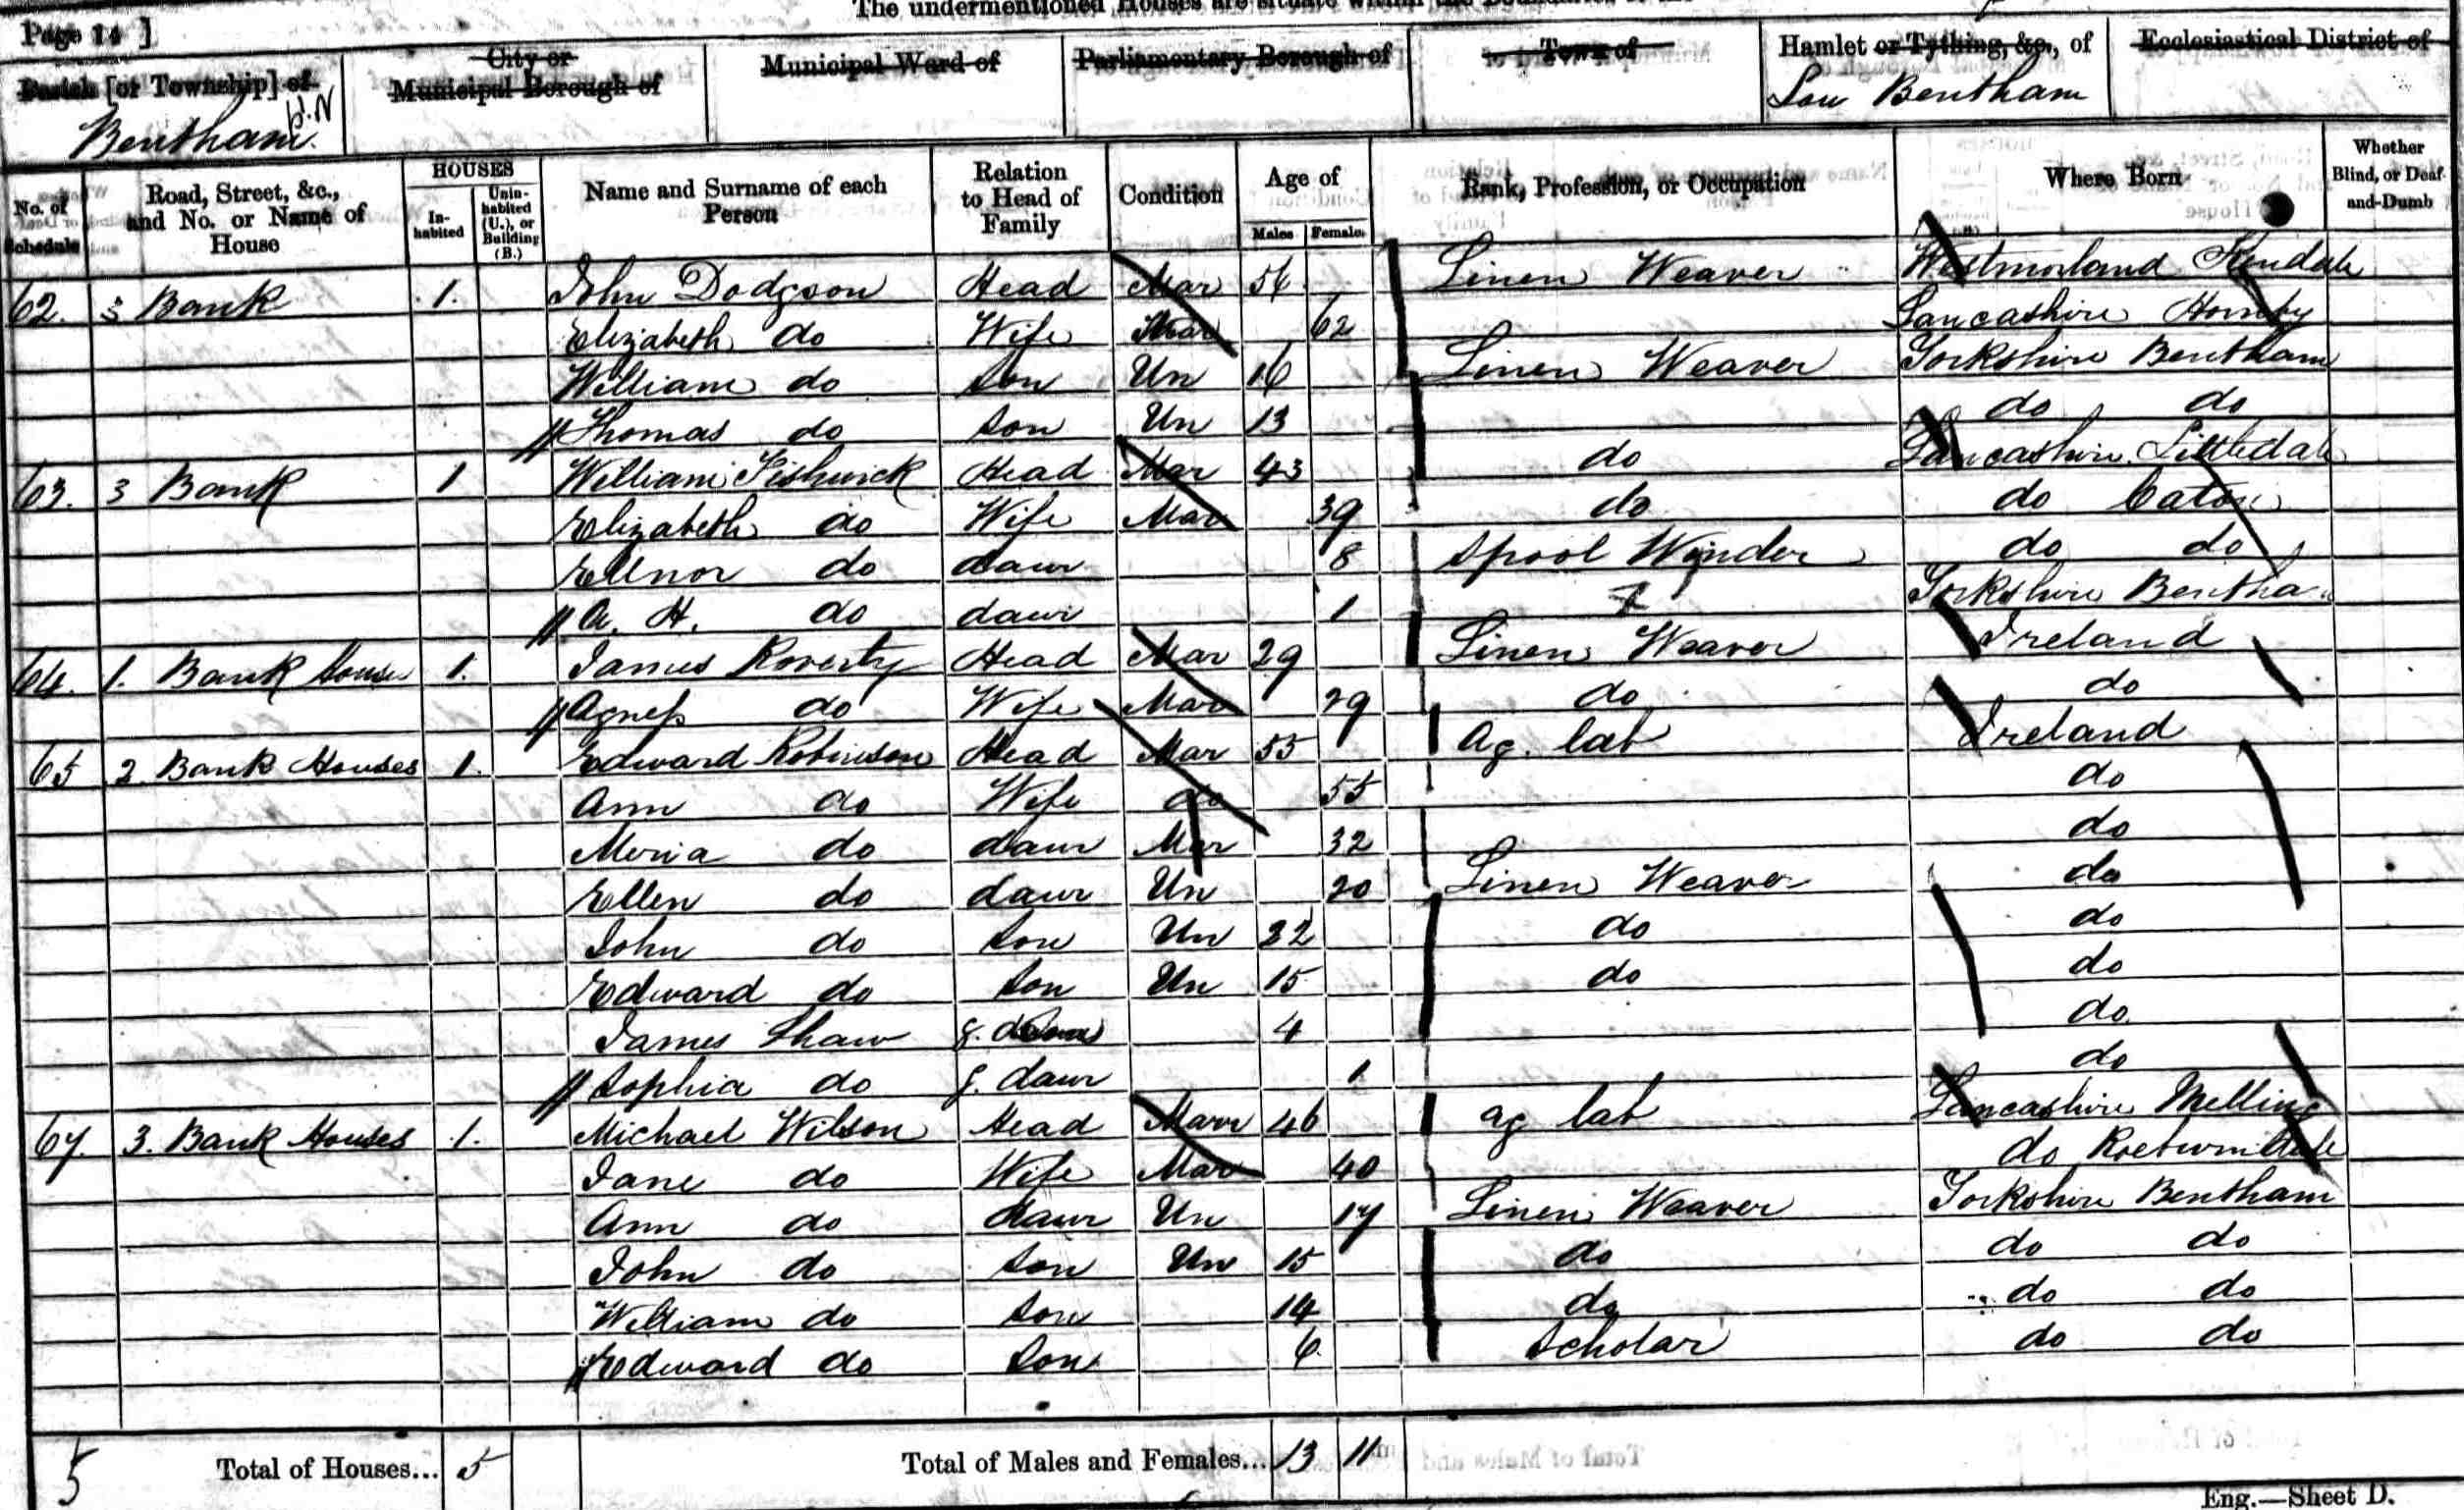 The undermentioned Houses are situate within the Boundaries of the
Page 14 ]
Parish [or Township] of
Bentham
City or Municipal Borough of
Municipal Ward of
Parliamentary Borough of
Town of
Hamlet or Tything, &c., of
Low Bentham
Ecclesiastical District of
No. of Schedule
Road, Street, &c., and No. or Name of House
HOUSES
In-habited
Unin-habited (U.), or Building (B.)
Name and Surname of each Person
Relation to Head of Family
Condition
Age of
Males
Females
Rank, Profession, or Occupation
Where Born
Whether Blind, or Deaf-and-Dumb
62. 3 Bank 1. John Dodgson Head Mar 56 Linen Weaver Westmorland Kendale
Elizabeth do Wife Mar 62 Lancashire Hornby
William do Son Un 16 Linen Weaver Yorkshire Bentham
Thomas do Son Un 13 do do
63. 3 Bank 1 William Fishwick Head Mar 43 do Lancashire Littledale
Elizabeth do Wife Mar 39 do do Caton
Ellnor do daur 8 Spool Winder do do
A. H. do daur 1 Yorkshire Bentha
64. 1. Bank House 1. James Roverty Head Mar 29 Linen Weaver Ireland
Agness do Wife Mar 29 do do
65 2 Bank Houses 1. Edward Robinson Head Mar 55 Ag. lab Ireland
Ann do Wife do 55 do
Meria do daur Mar 32 do
Ellen do daur Un 20 Linen Weaver do
John do Son Un 22 do do
Edward do Son Un 15 do do
James Shaw g. 4 do
Sophia do g. daur 1 do
67. 3. Bank Houses 1. Michael Wilson Head Marr 46 ag lab Lancashire Melling
Jane do Wife Mar 40 do
Ann do daur Un 17 Linen Weaver Yorkshire Bentham
John do Son Un 15 do do do
William do Son 14 do do do
Edward do Son 6 Scholar do do
5 Total of Houses... 5 Total of Males and Females... 13 11
Eng.—Sheet D.